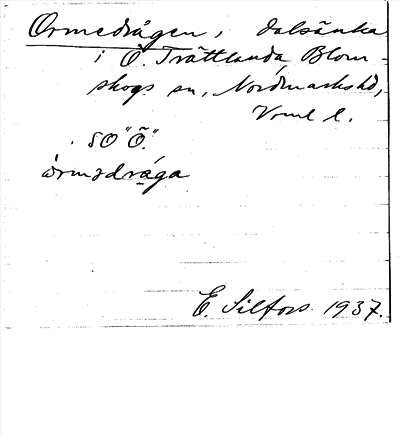 Ormedrågen, dalsänka
i Ö. Trättlanda, Blom-
skogs sn, Nordmarks hd,
Vrml l.
SO "Ö."
òrmədrága
E. Silfors 1937.